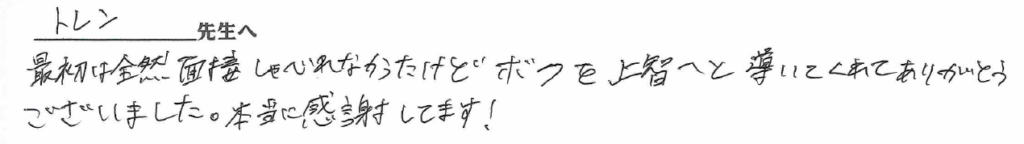 トレン先生へ
最初は全然面接しゃべれなかったけどボクを上智へと導いてくれてありがとう
ございました。本当に感謝してます！